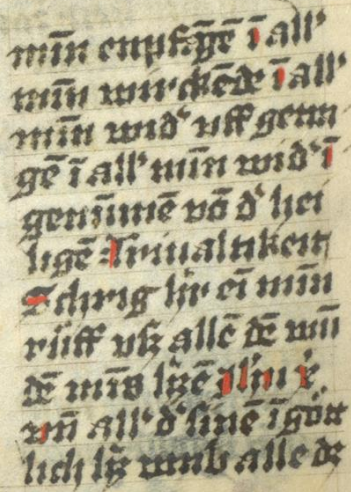 min enpfāgē ī all'
mīn wirckēde ī all'
mīn wid' uff genn
gē ī all' mīn wid' ī
genūmē vō d' hei
ligē Triualtikeit
Schrig h'r ei mīn
rūff vſz allē dē wū
dē mīs h'zē
vñ all' d' ſinē ī göt
lich h'z vmb alle dz